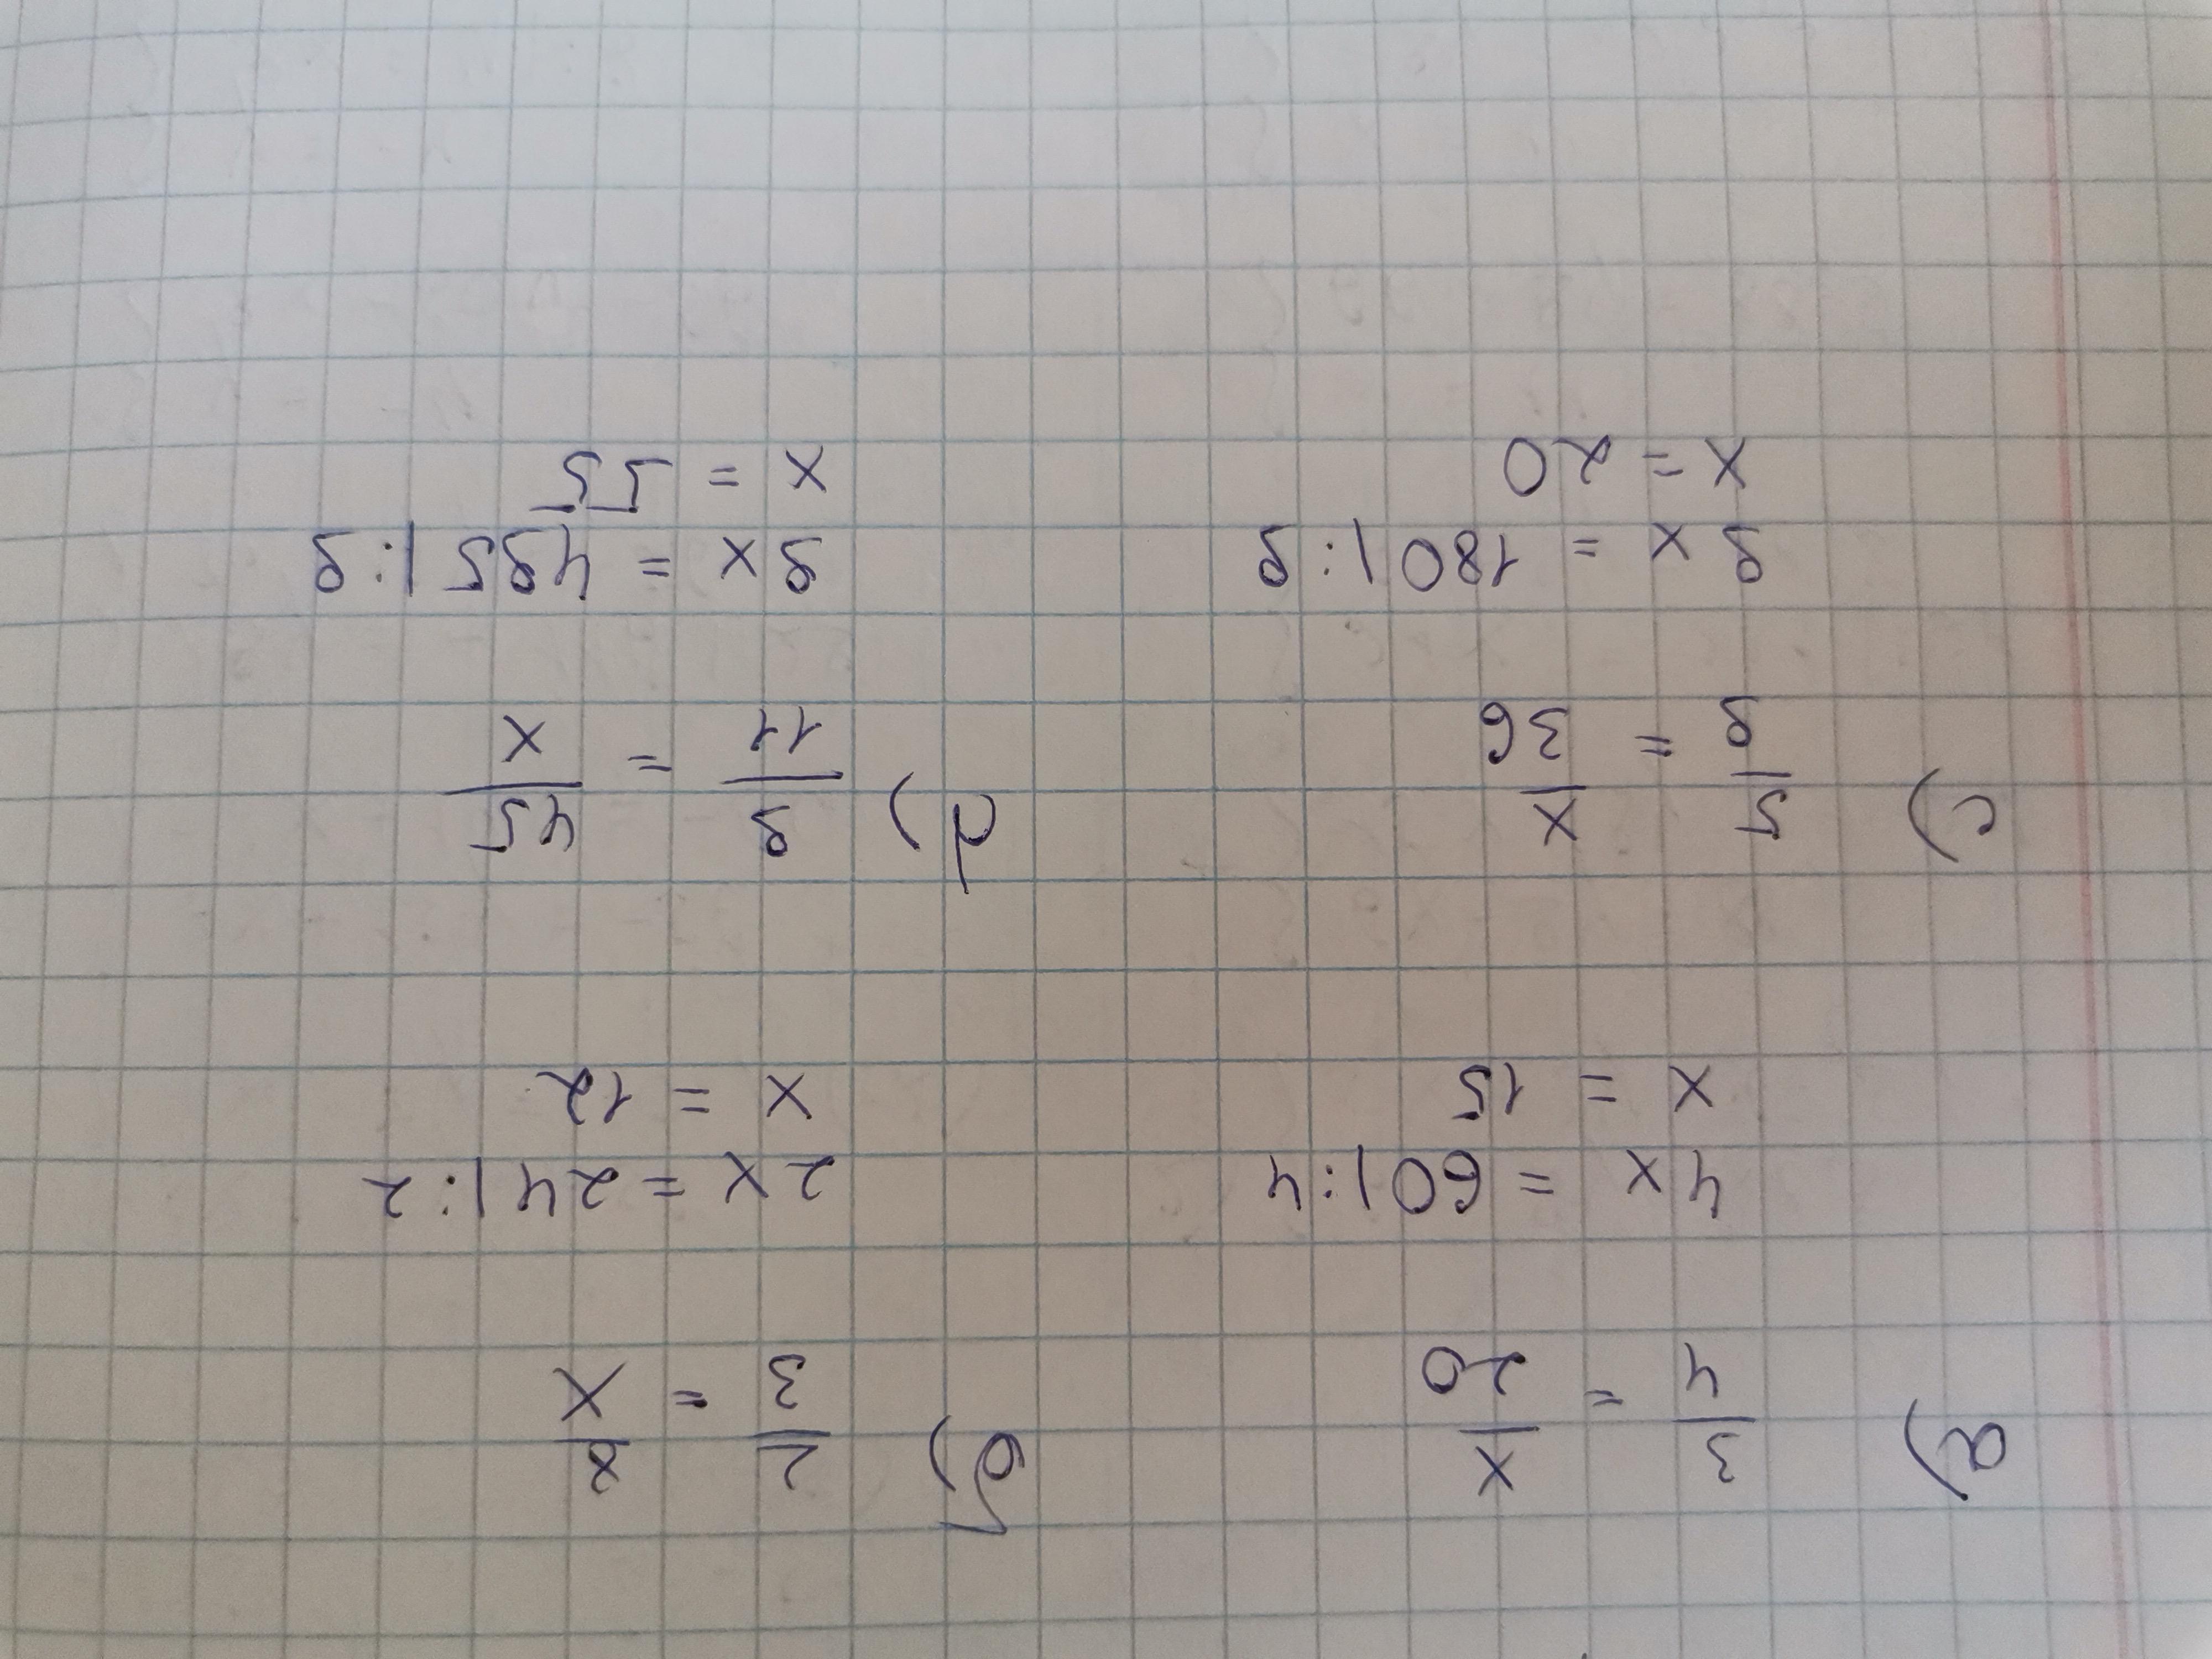 a) 3/4 = x/20
4x = 60 |:4
x = 15
б) 2/3 = 8/x
2x = 24 |:2
x = 12
c) 5/9 = x/36
9x = 180 |:9
x = 20
d) 9/11 = 45/x
9x = 495 |:9
x = 55